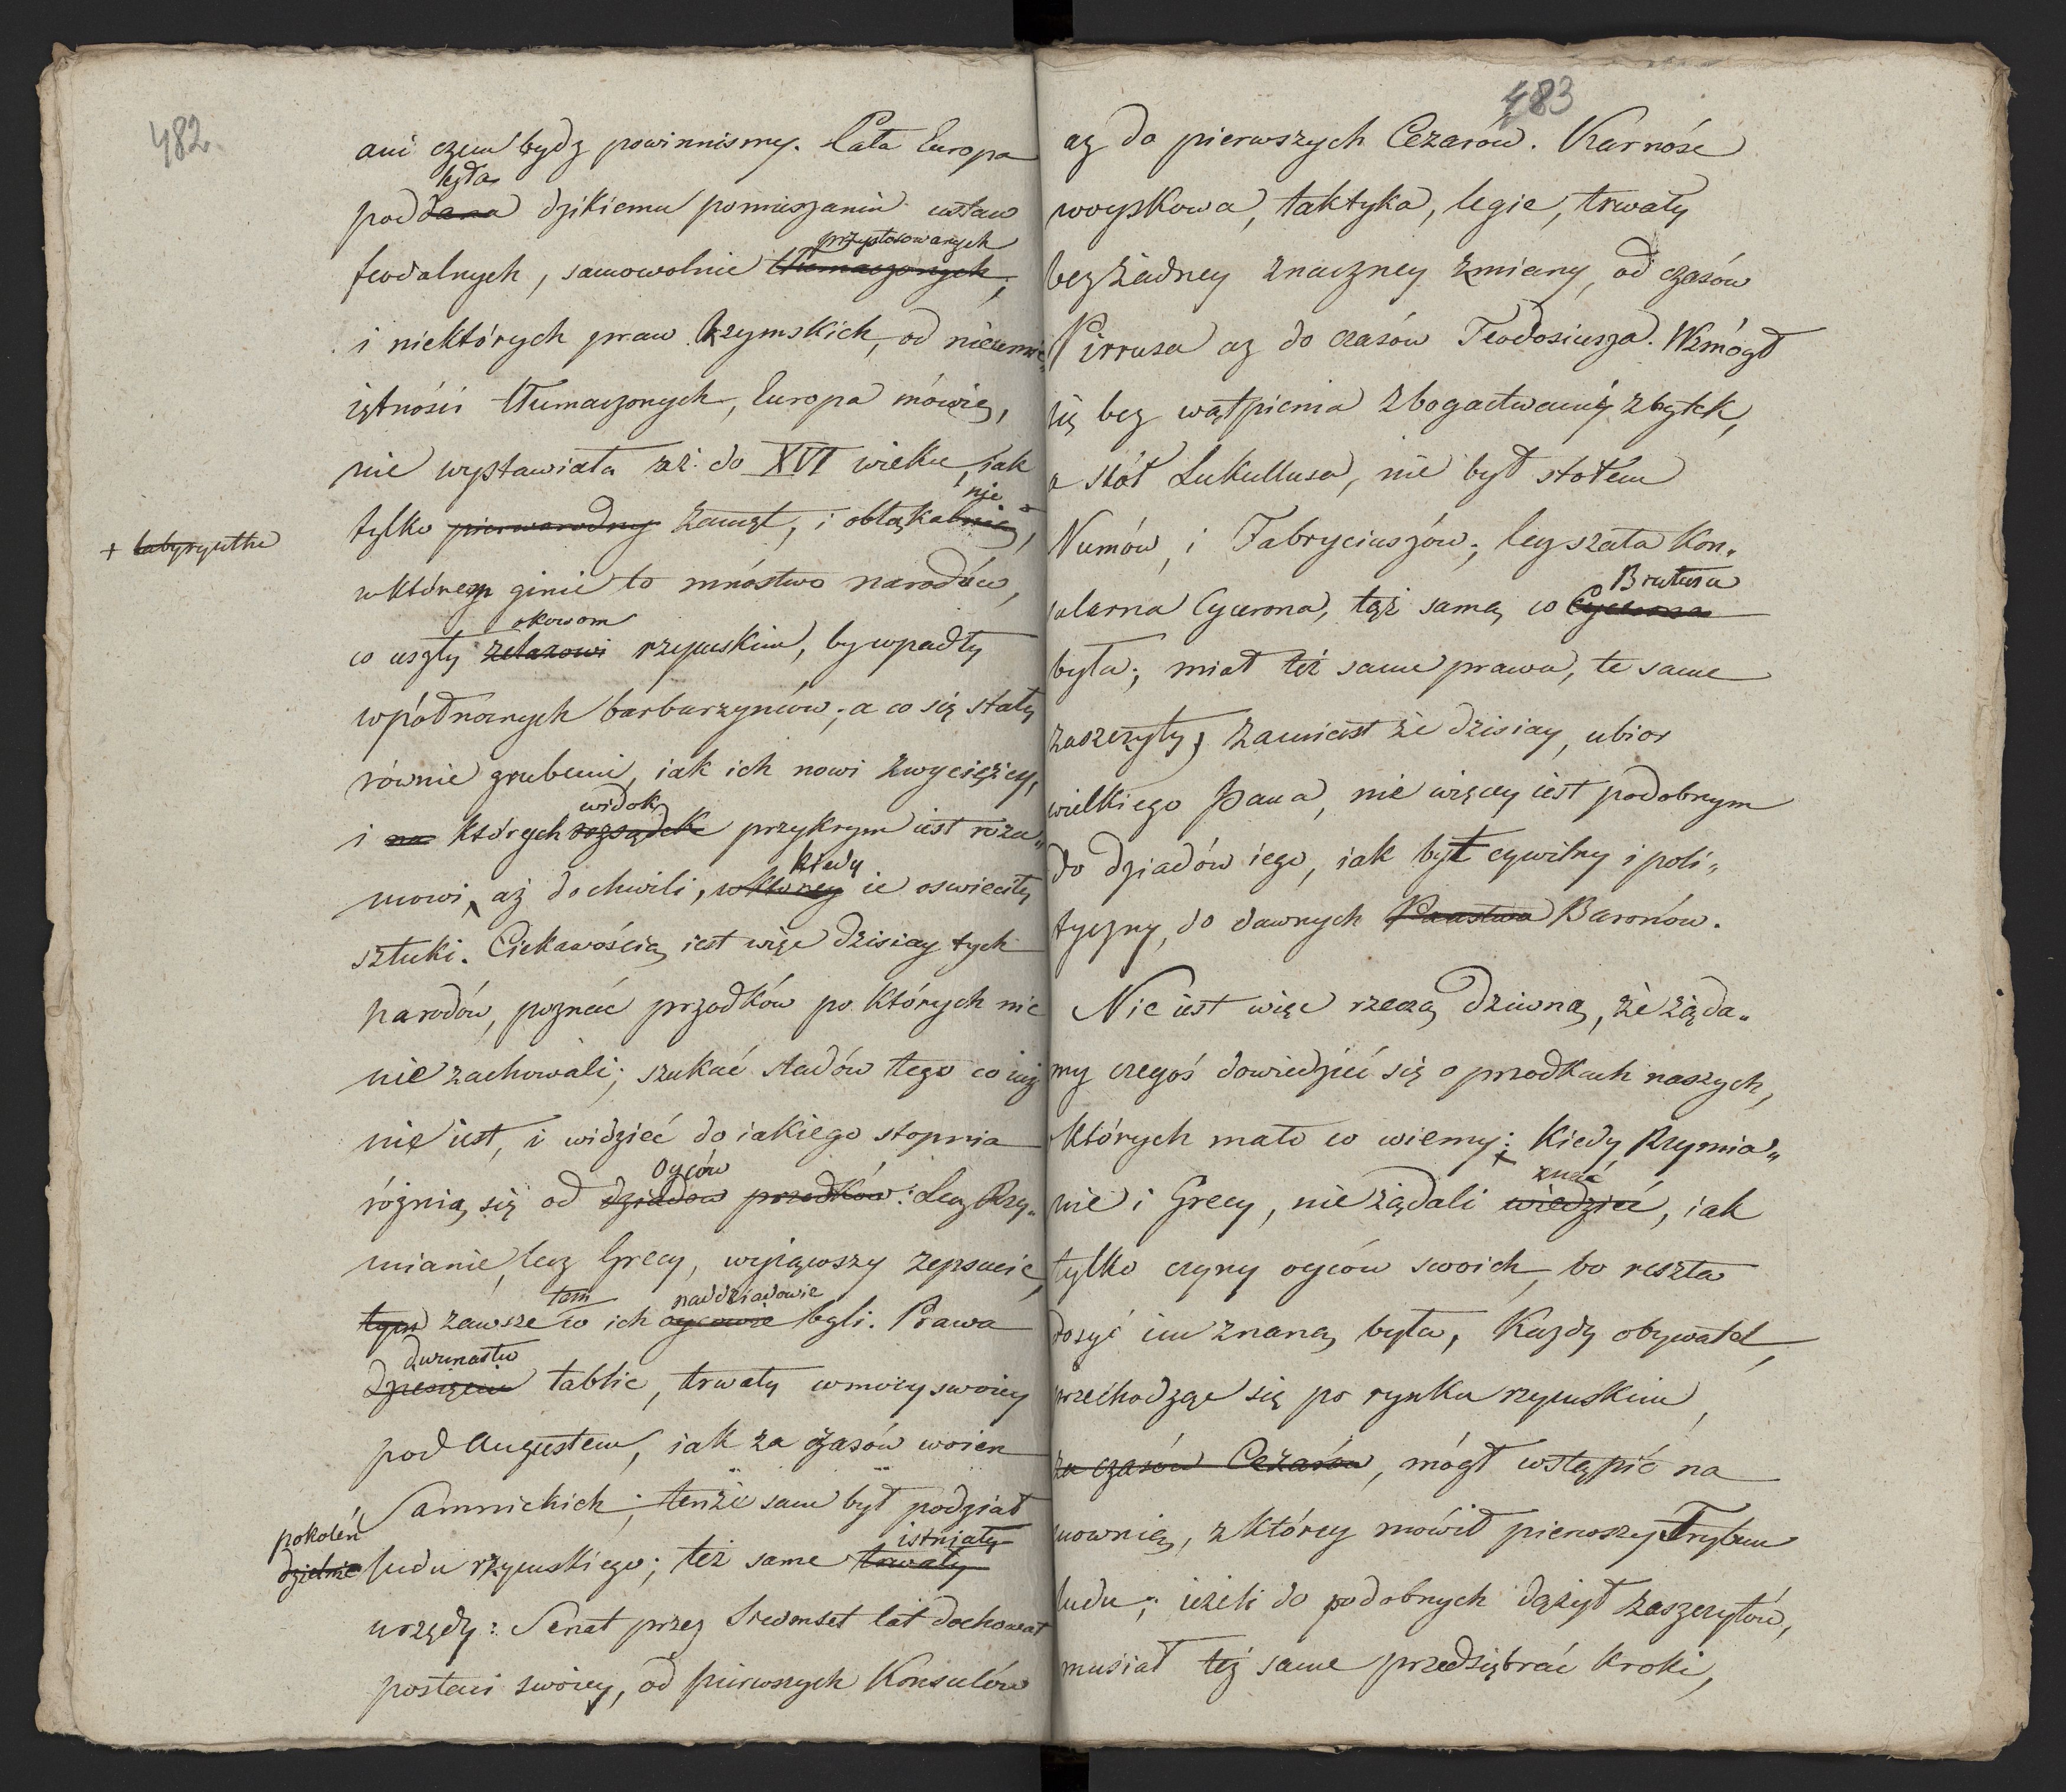 482.
ani czem bydz powinnismy. Cała Europa
legła
poddana dzikiemu pomieszaniu ustaw
przystosowanych
feodalnych, samowolnie tłumaczonych,
i niektórych praw Rzymskich, od nieumie„
iętności tłumaczonych, Europa mówię,
nie wystawiała aż do XVI wieku, iak
nie
tylko pierworodny zamęt, i obłąkalnią,
+ labyryntu
w którem ginie to mnóstwo narodów,
okowom
co uszły żelazowi rzymskim, by wpadły
w północnych barbarzyńców; a co się stały
równie grubemi, iak ich nowi zwycięźcy,
widok
i na których rozsądek przykrym iest rozu„
kiedy
mowi, aż do chwili, w ktorey ie oswieciły
sztuki. Ciekawością iest więc dzisiay tych
narodów, poznać przodków po których nic
nie zachowali; szukać sladów tego co iuż
nie iest, i widzieć do iakiego stopnia
Oyców
różnią się od dziadów przodków: Lecz Rzy„
mianie, lecz Grecy, wyiąwszy zepsucie,
tem naddziadowie
tym zawsze co ich oycowie byli. Prawa
dwunastu
dziesięciu tablic, trwały w mocy swoiey
pod Augustem, iak za czasów woien
Samnickich; tenże sam był podział
pokoleń istniały
dzielnic ludu rzymskiego; też same trwały
urzędy: Senat przez siedmset lat dochował
postaci swoiey, od pierwszych Konsulów
483
az do pierwszych Cezarów. Karność
woyskowa, taktyka, legie, trwały
bez żadney znaczney zmiany, od czasów
Pirrusa az do czasów Teodosiusza. Wzmógł
się bez wątpienia z bogactwami zbytek,
a stół Lukullusa, nie był stołem
Numów, i Fabryciuszów; lecz szata kon„
Brutusa
sularna Cycerona, tąż samą co Cycerona
była; miał też same prawa, te same
zaszczyty; zamiast że dzisiay, ubior
wielkiego Pana, nie więcey iest podobnym
do dziadów iego, iak był cywilny i poli„
tyczny, do dawnych Państwa Baronów.
Nie iest więc rzeczą dziwną, że żąda„
my czegoś dowiedzieć się o przodkach naszych,
których mało co wiemy; kiedy Rzymia„
znać
nie i Grecy, nie żądali wiedzieć, iak
tylko czyny oyców swoich, bo reszta
dosyć im znaną była, Każdy obywatel,
przechodząc się po rynku rzymskim,
za czasów Cezarów, mógł wstąpić na
mownię, z którey mówił pierwszy Trybun
ludu; ieżeli do podobnych dążył zaszczytów,
musiał też same przedsiębrać kroki,